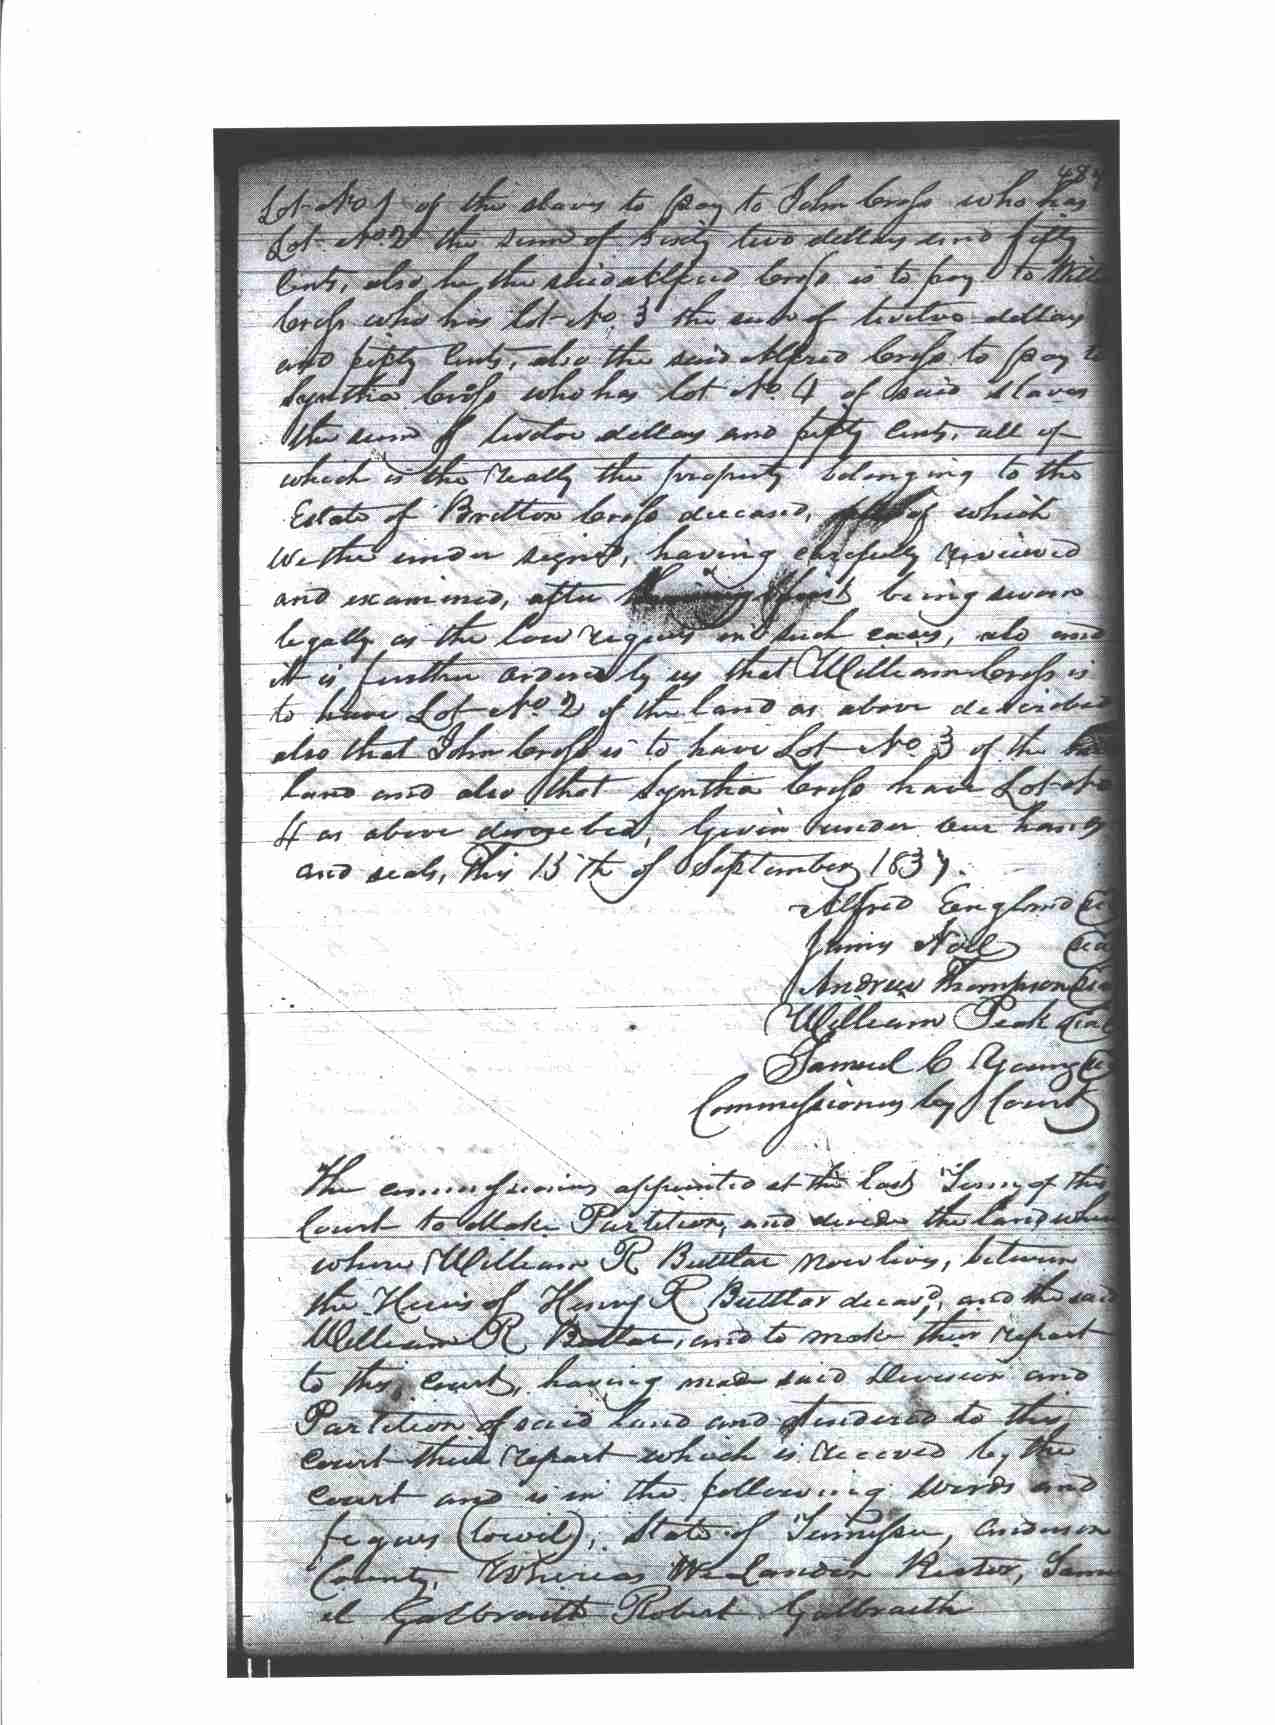 48
Lot No 1 of the slaves to pay to John Cross who has
Lot No. 2 the sum of sixty two dollars and fifty
Cents, also he the said Alfred Cross is to pay to Will
Cross who has lot No. 3 the sum of twelve dollars
and fifty Cents, also the said Alfred Cross to pay to
Syntha Cross who has lot No. 4 of said slaves
the sum of twelve dollars and fifty Cents. all of
which is the really the property belonging to the
Estate of Britton Cross deceased, of which
We the under signed, having carefully reviewed
and examined, after being sworn
legally as the law requires in such cases, also and
it is further ordered by us that William Cross is
to have Lot No. 2 of the land as above described
also that John Cross is to have Lot No 3 of the
land and also that Syntha Cross have Lot No
4 as above described, Given under our hands
and seals, this 15th of September 1837.
Alfred England Seal
James Noel Seal
Andrew Thompson Seal
William Peak Seal
Samuel C Young Seal
Commissioners by Court
The commissioners appointed at the last Term of this
Court to Make Partition, and divide the land
where William R Buttlar now lives, between
the Heirs of Henry R Buttlar decasd, and the said
William R Buttlar, and to make their report
to this court, having made said Division and
Partition of said Land and tendered to this
Court their report which is receved by the
Court and is in the following words and
figures (towit), State of Tennessee, Anderson
County, Whereas We Sam
el Galbraith Robert Galbraith